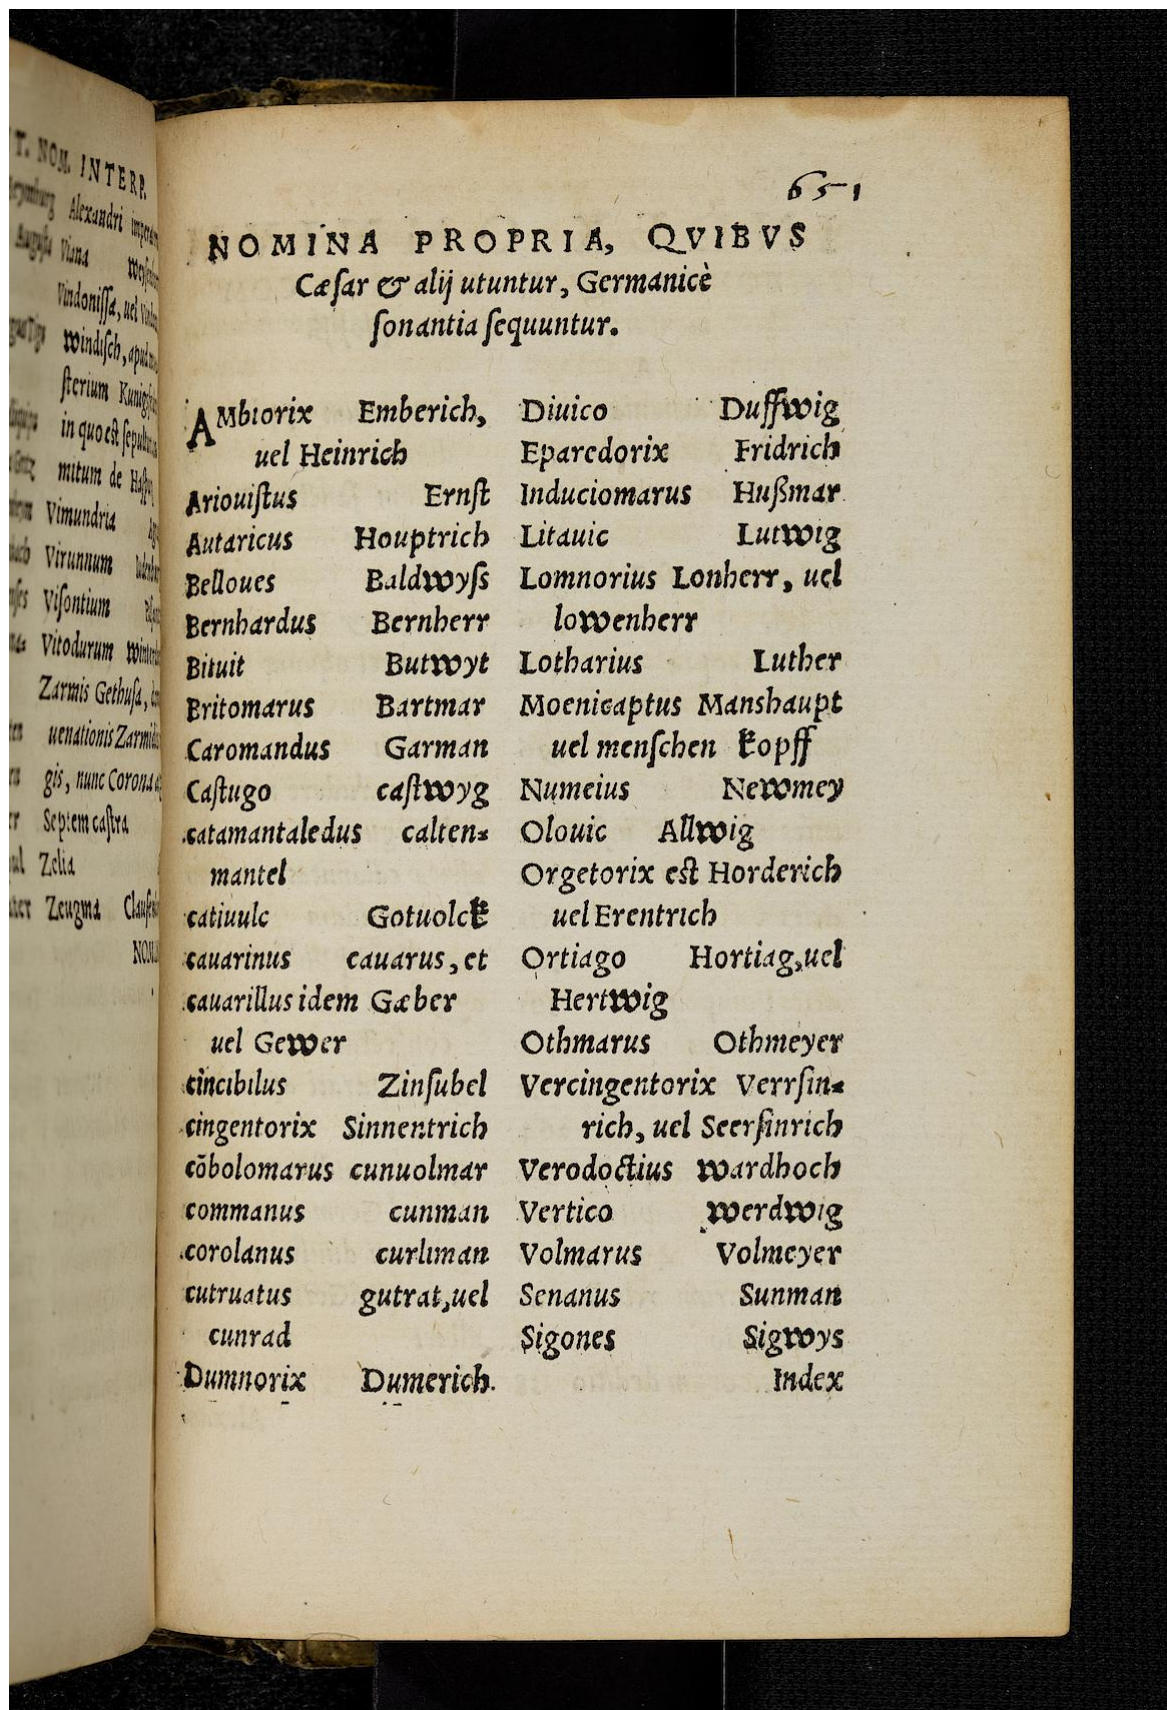 T. NOM. INTERP.
Alexandri
Viana
Vindonissa, uel
Windisch, apud
sterium
in quo est
mitum de
Vimundria
Virunnum
Visontium
Vitodurum
Zarmis Gethusa,
uenationis
gis, nunc Corona
Septem castra
Zelia
Zeugma
651
NOMINA PROPRIA, QVIBVS
Cæſar & alij utuntur, Germanicè
ſonantia ſequuntur.
AMbiorix Emberich,
uel Heinrich
Ariouiſtus Ernſt
Autaricus Houptrich
Belloues Baldwyſs
Bernhardus Bernherr
Bituit Butwyt
Britomarus Bartmar
Caromandus Garman
Caſtugo caſtwyg
catamantaledus calten=
mantel
catiuulc Gotuolck
cauarinus cauarus, et
cauarillus idem Gæber
uel Gewer
cincibilus Zinſubel
cingentorix Sinnentrich
cõbolomarus cunuolmar
commanus cunman
corolanus curliman
cutruatus gutrat, uel
cunrad
Dumnorix Dumerich.
Diuico Duffwig
Eparedorix Fridrich
Induciomarus Hußmar
Litauic Lutwig
Lomnorius Lonherr, uel
lowenherr
Lotharius Luther
Moenicaptus Manshaupt
uel menſchen kopff
Numeius Newmey
Olouic Allwig
Orgetorix est Horderich
uel Erentrich
Ortiago Hortiag, uel
Hertwig
Othmarus Othmeyer
Vercingentorix Verrſin=
rich, uel Seerſinrich
Verodoctius wardhoch
Vertico werdwig
Volmarus Volmeyer
Senanus Sunman
Sigones Sigwys
Index